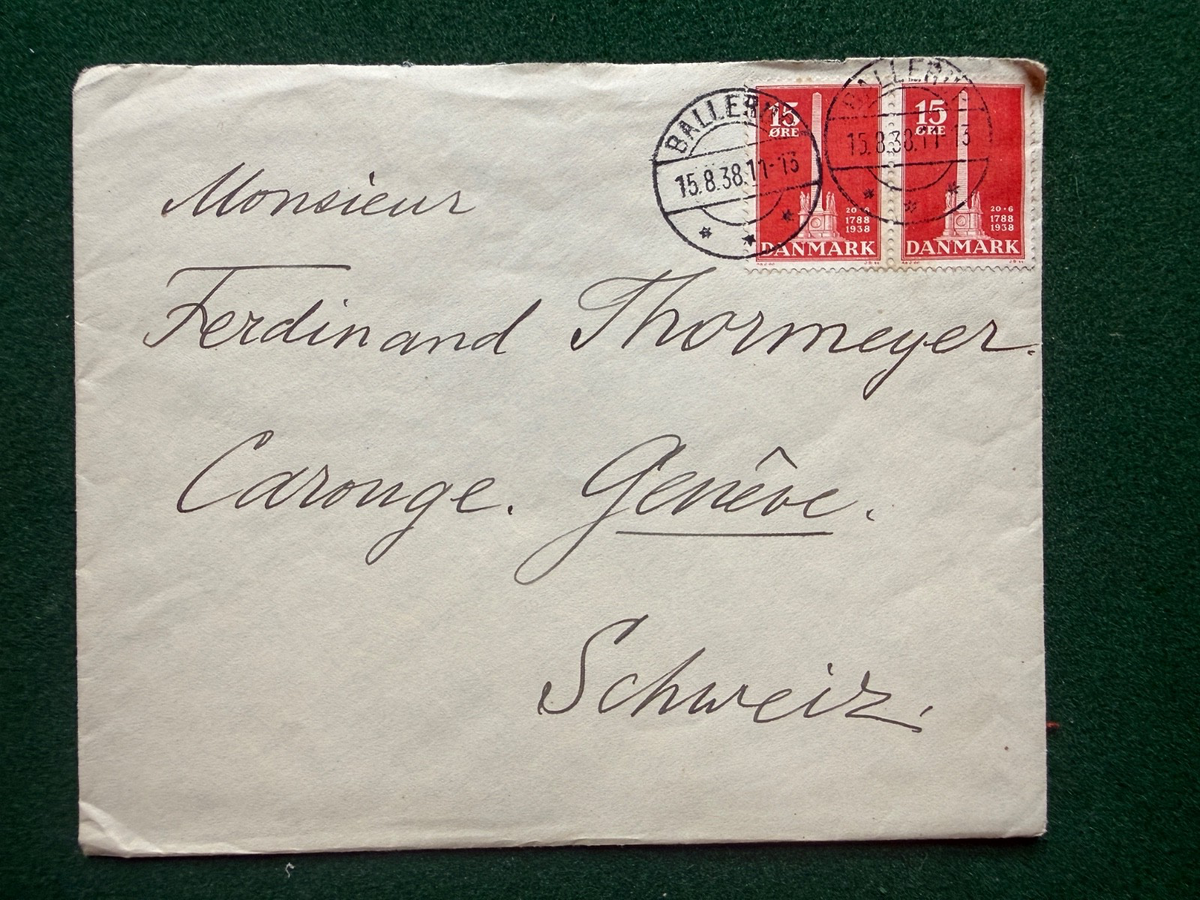 15 ØRE
20·6
1788
1938
DANMARK
15 ØRE
20·6
1788
1938
DANMARK
BALLERUP
15.8.38.11-13
BALLERUP
15.8.38.11-13
Monsieur
Ferdinand Thormeyer.
Carouge. Genêve.
Schweiz.